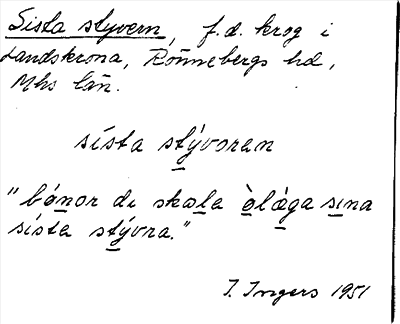 Sista styvern, f.d. krog i
Landskrona, Rönnebergs hd,
Mhs län.
sísta stývoran
"bónor di skala òlǽga sina
sísta stývra."
I. Ingers 1951